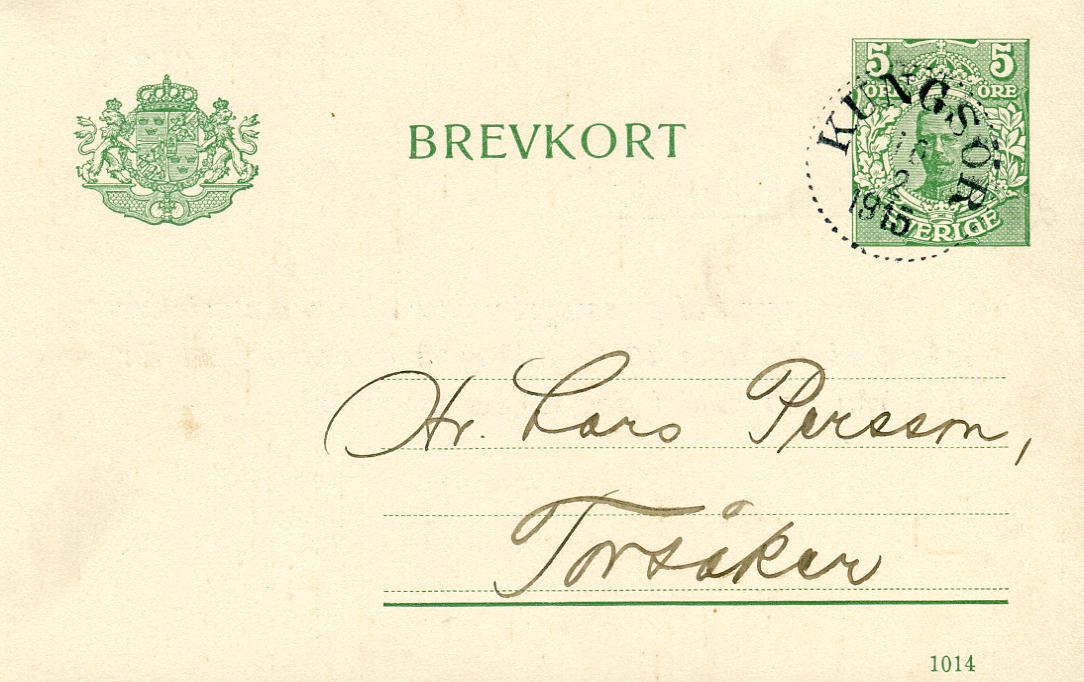 5 5
ÖRE ÖRE
BREVKORT
KUNGSÖR
2
1915
SVERIGE
Hr. Lars Persson,
Torsåker
1014